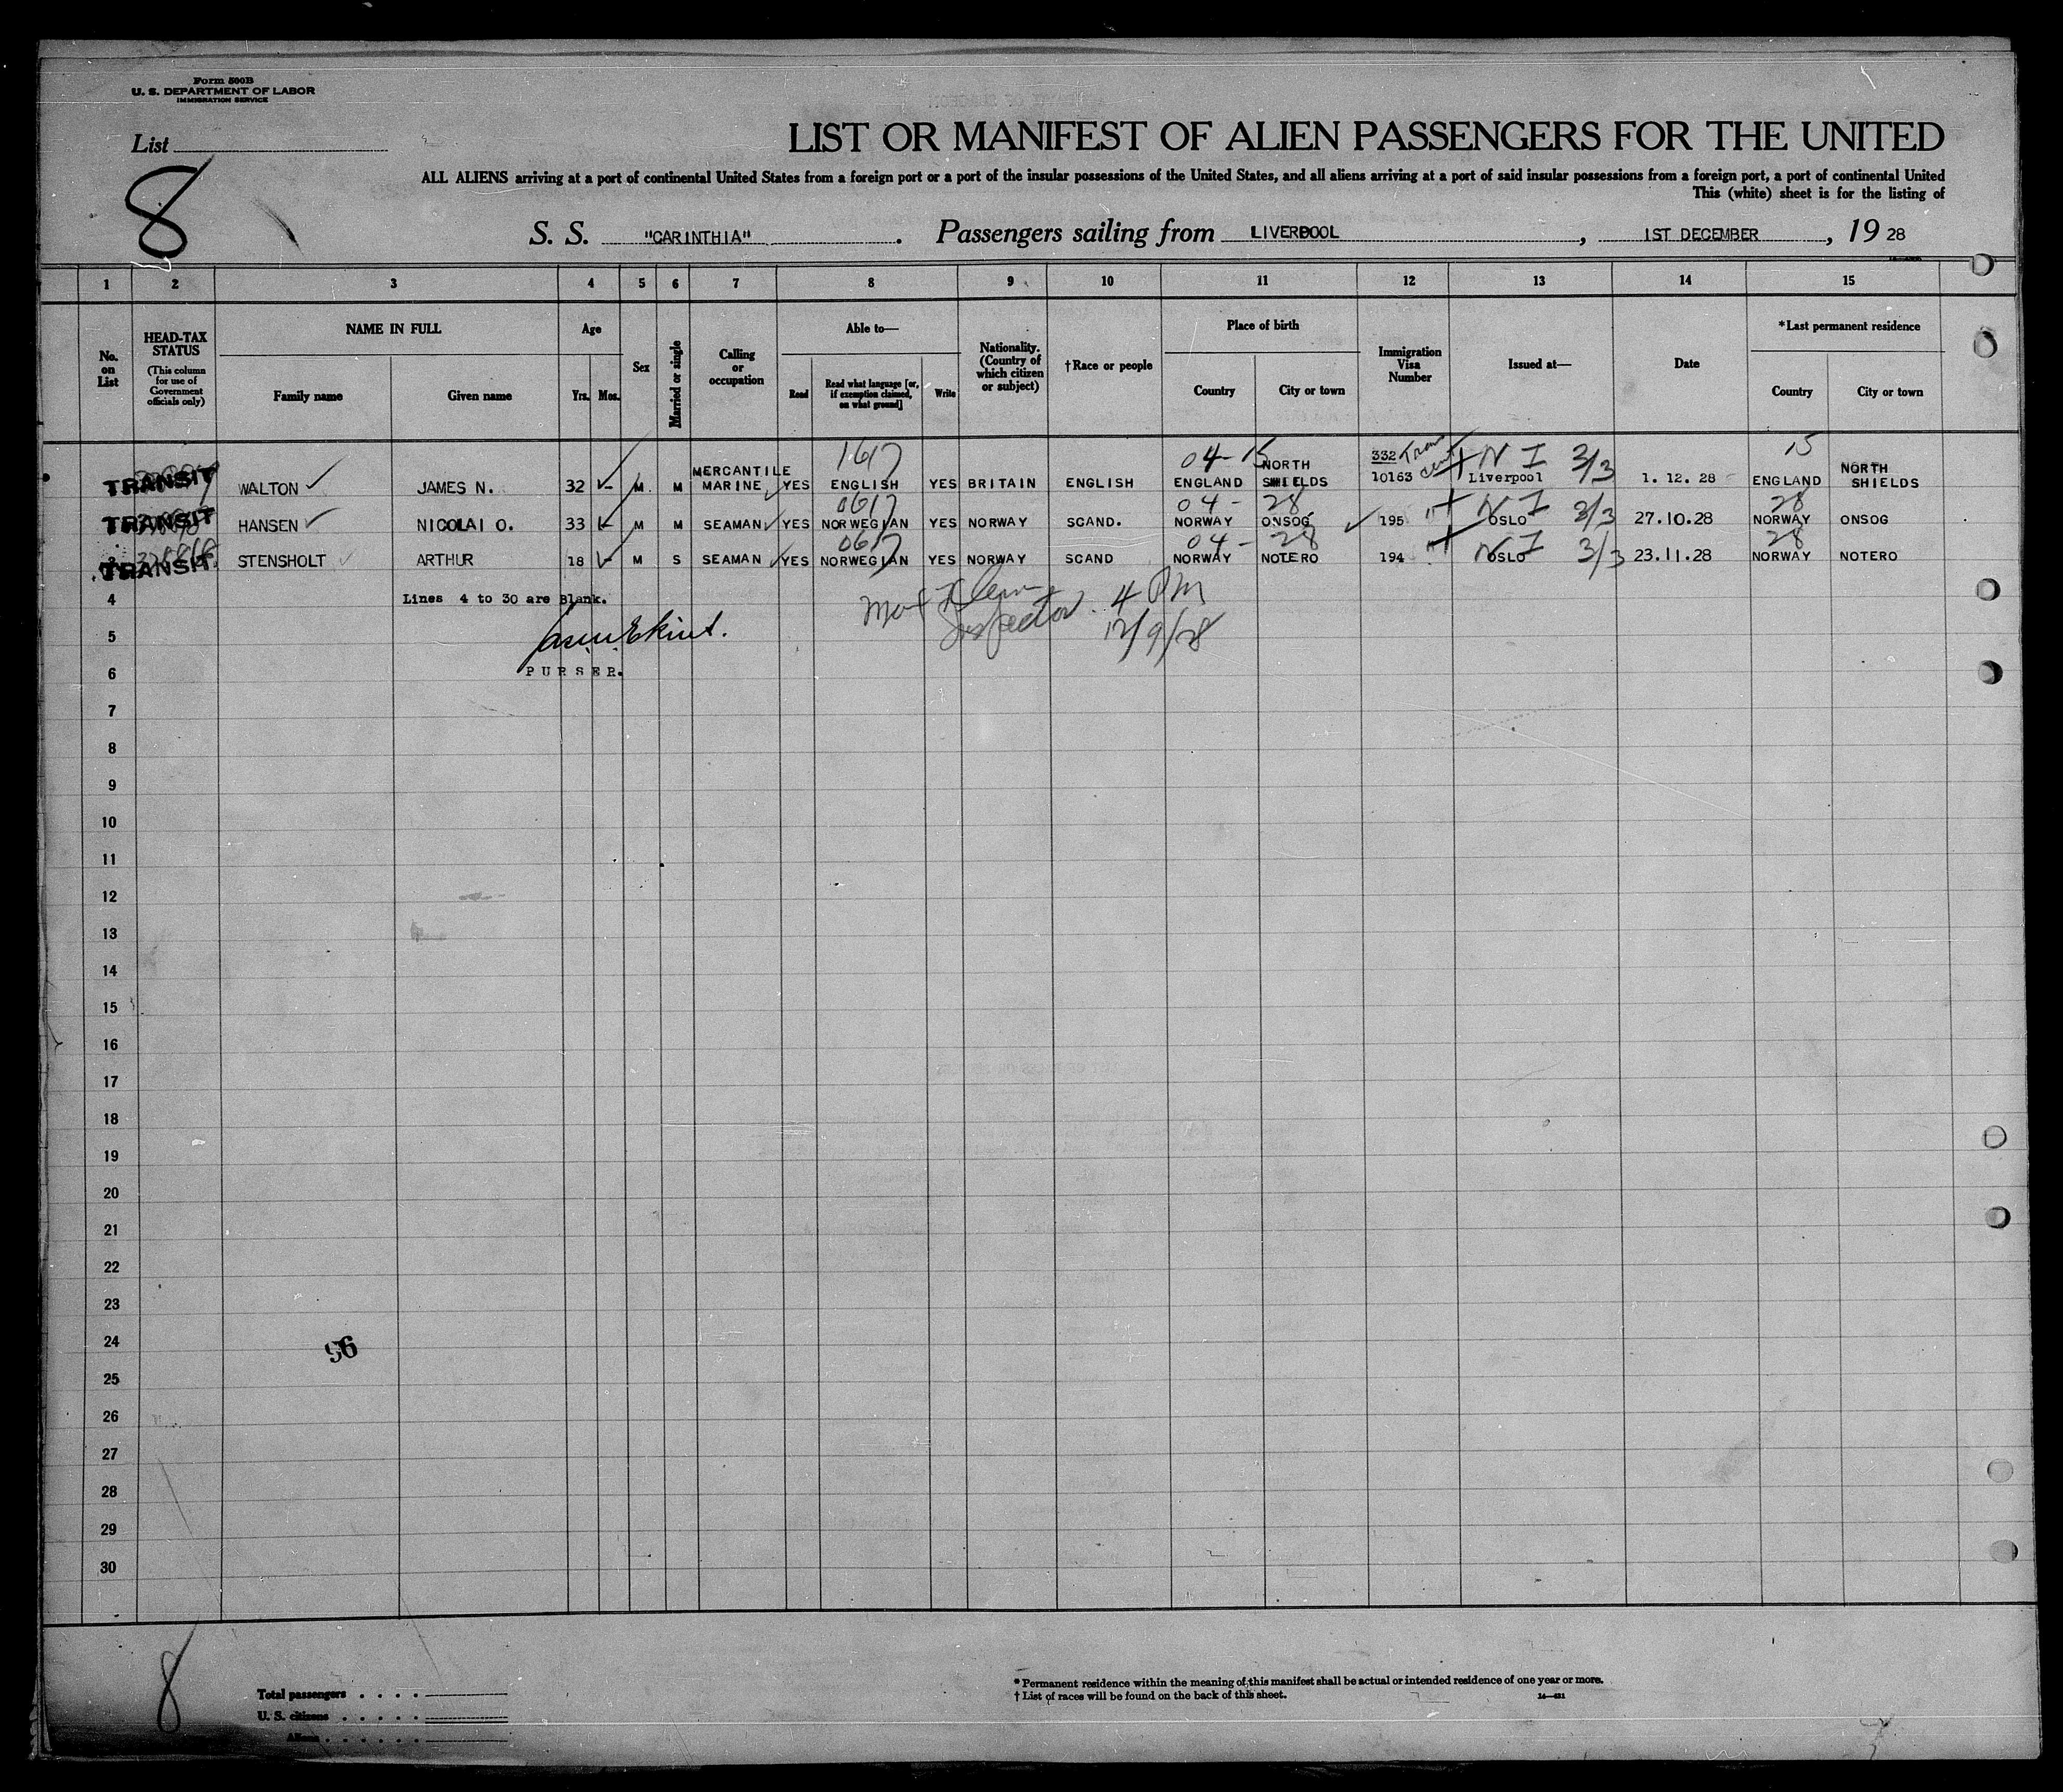 Form 500B
U. S. DEPARTMENT OF LABOR
IMMIGRATION SERVICE
List
8
LIST OR MANIFEST OF ALIEN PASSENGERS FOR THE UNITED
ALL ALIENS arriving at a port of continental United States from a foreign port or a port of the insular possessions of the United States, and all aliens arriving at a port of said insular possessions from a foreign port, a port of continental United
This (white) sheet is for the listing of
S. S. "CARINTHIA" . Passengers sailing from LIVERPOOL , 1ST DECEMBER , 19 28
1 2 3 4 5 6 7 8 9 10 11 12 13 14 15
No. on List
HEAD-TAX STATUS (This column for use of Government officials only)
NAME IN FULL
Family name Given name
Age
Yrs. Mos.
Sex
Married or single
Calling or occupation
Able to—
Read Read what language [or, if exemption claimed, on what ground] Write
Nationality. (Country of which citizen or subject)
†Race or people
Place of birth
Country City or town
Immigration Visa Number
Issued at—
Date
*Last permanent residence
Country City or town
1617 04-15 332 N I 3/3 15
TRANSIT WALTON JAMES N. 32 M M MERCANTILE MARINE YES ENGLISH YES BRITAIN ENGLISH ENGLAND NORTH SHIELDS 10163 Liverpool 1. 12. 28 ENGLAND NORTH SHIELDS
0617 04- 28 N I 3/3 28
TRANSIT HANSEN NICOLAI O. 33 M M SEAMAN YES NORWEGIAN YES NORWAY SCAND. NORWAY ONSOG 195 OSLO 27.10.28 NORWAY ONSOG
0617 04- 28 N I 3/3 28
TRANSIT STENSHOLT ARTHUR 18 M S SEAMAN YES NORWEGIAN YES NORWAY SCAND NORWAY NOTERO 194 OSLO 23.11.28 NORWAY NOTERO
4 Lines 4 to 30 are Blank.
4 PM
Inspector
12/9/28
5
6 PURSER.
7
8
9
10
11
12
13
14
15
16
17
18
19
20
21
22
23
24
96
25
26
27
28
29
30
8
Total passengers
U. S. citizens
Aliens
* Permanent residence within the meaning of this manifest shall be actual or intended residence of one year or more.
† List of races will be found on the back of this sheet.